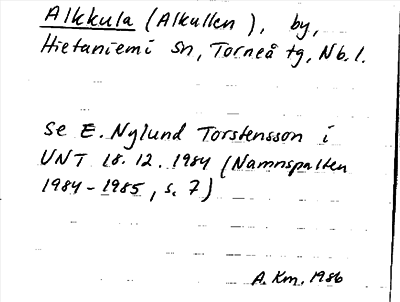 Alkkula (Alkullen), by,
Hietaniemi sn, Torneå tg, Nb. l.
Se E. Nylund Torstensson i
UNT 18.12.1984 (Namnspalten
1984-1985, s. 7)
A. Km. 1986